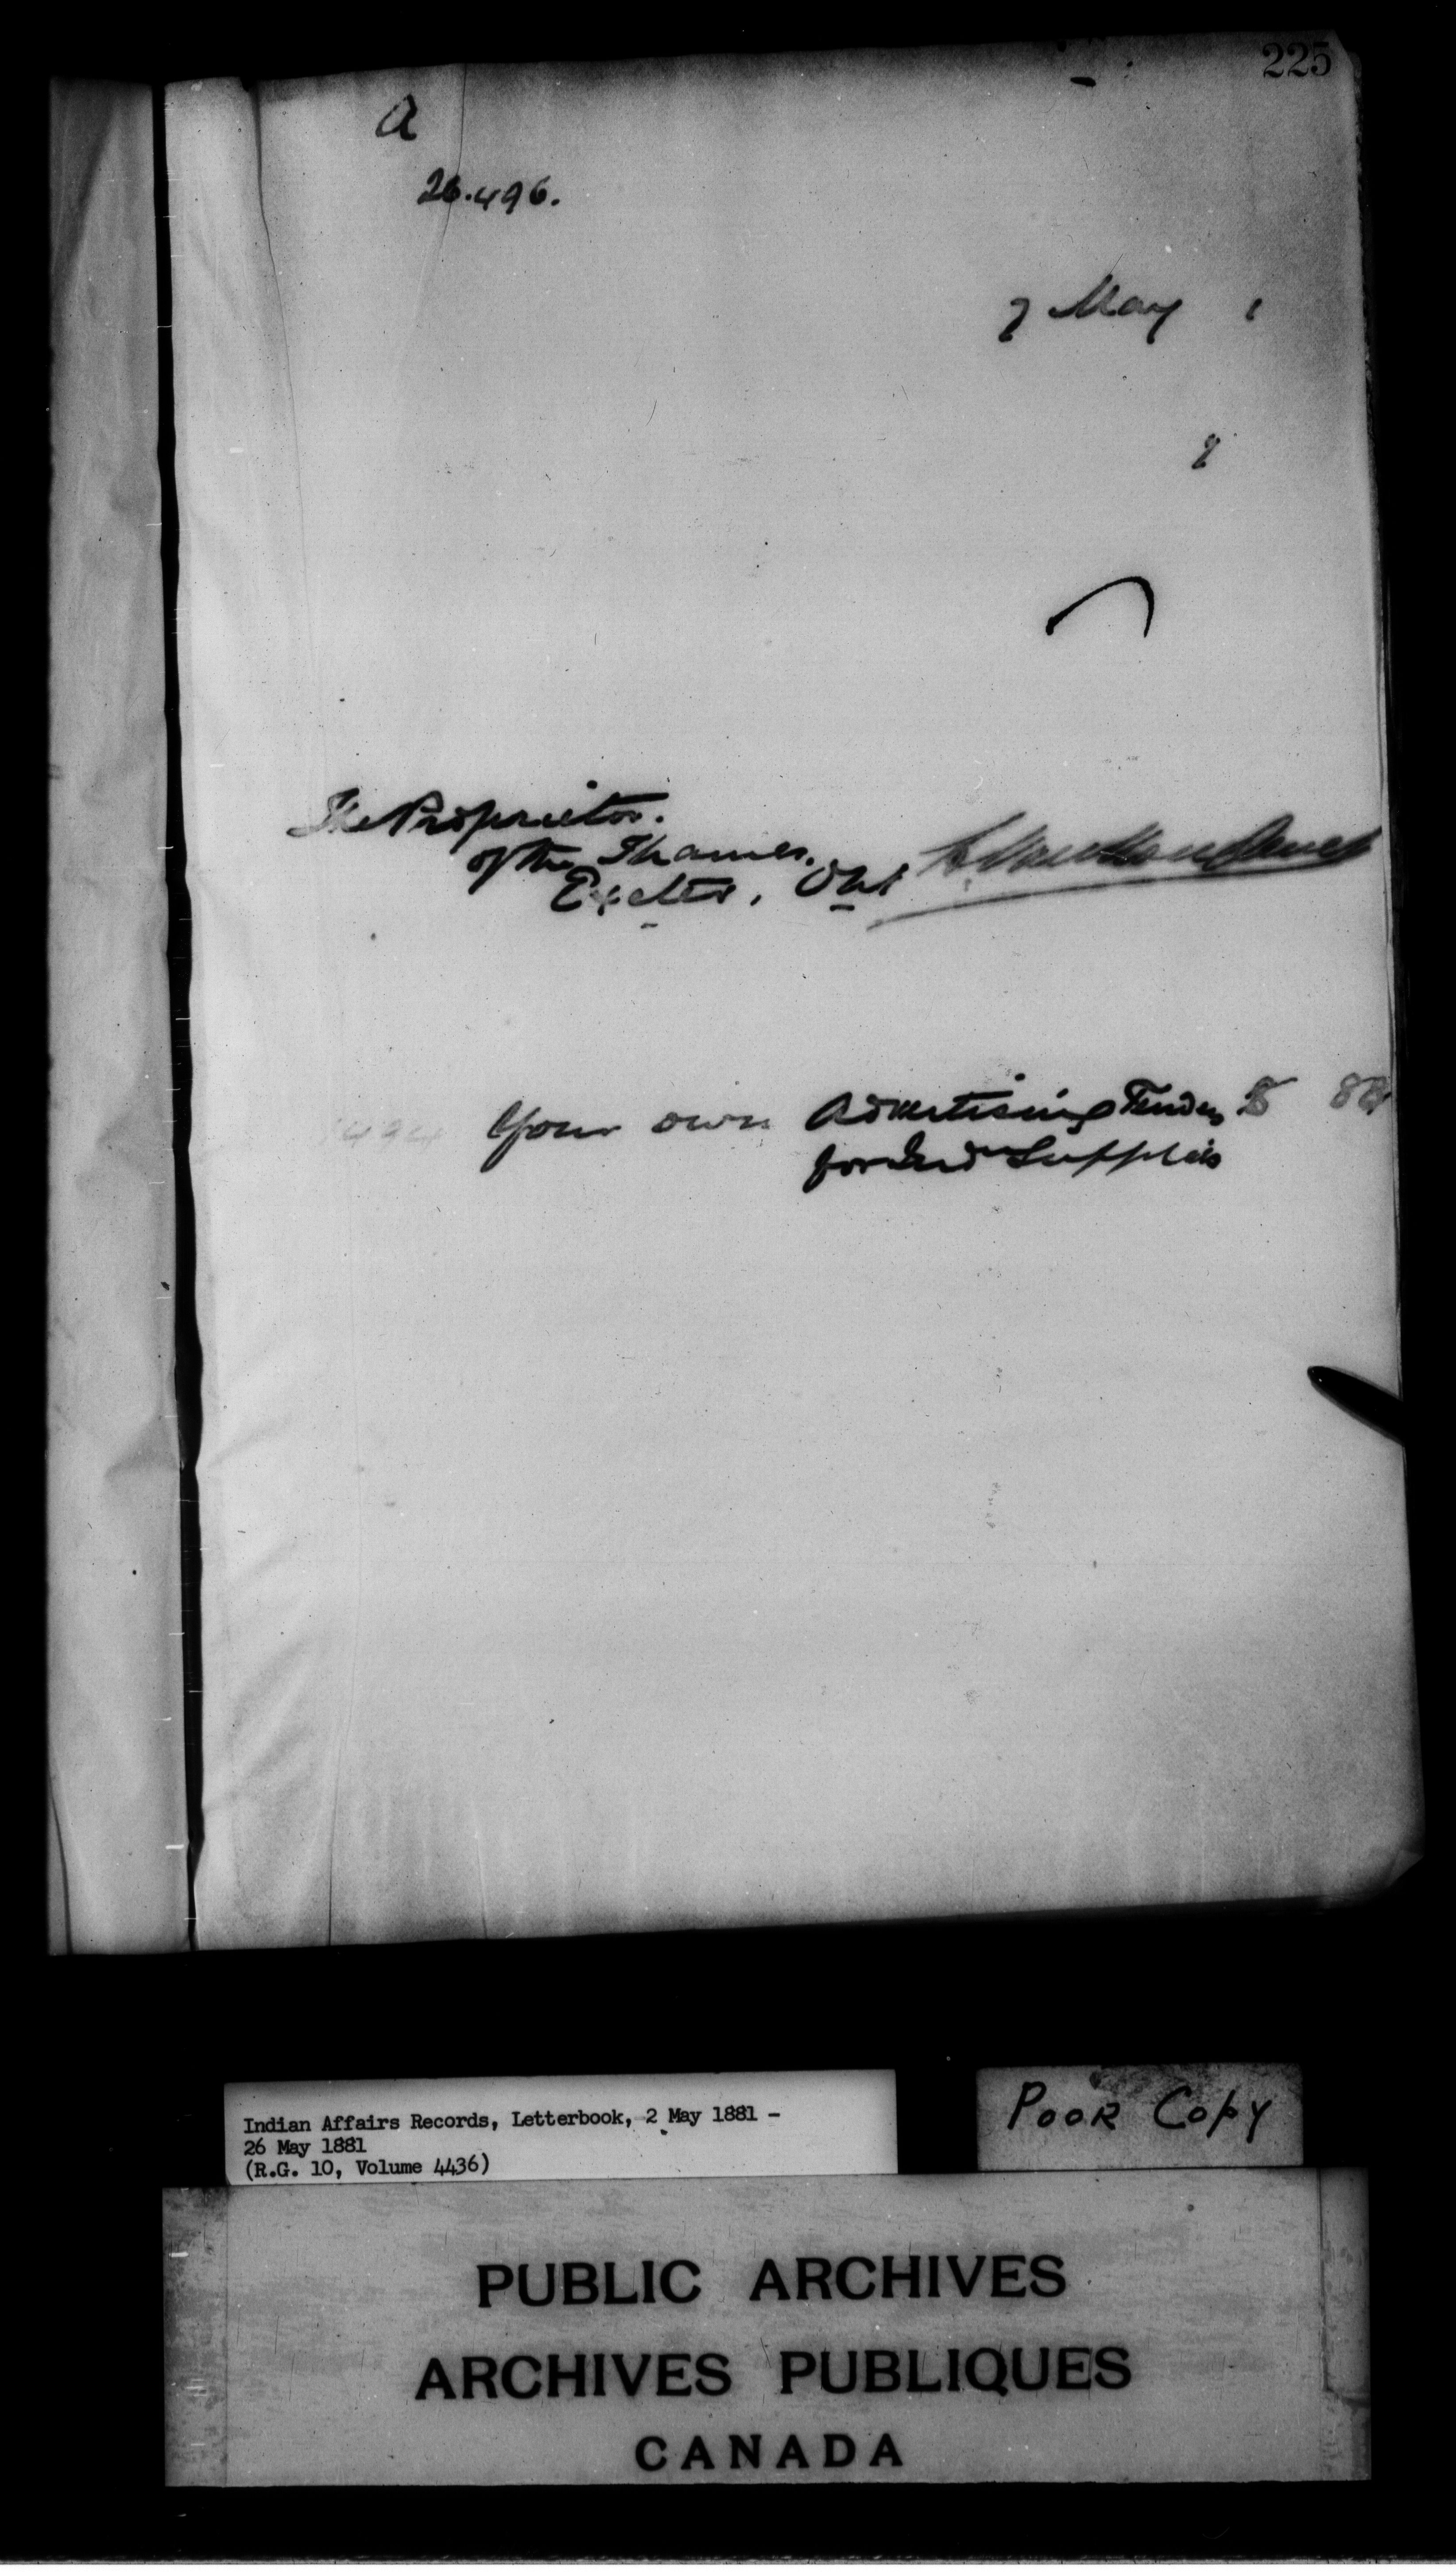 225
A
26.496.
7 May 1
8
The Proprietor.
of the Thames.
Exeter, Ont
1494 Your own Advertising Tenders 8 88
for Ind Supplies
Indian Affairs Records, Letterbook, 2 May 1881 -
26 May 1881
(R.G. 10, Volume 4436)
POOR COPY
PUBLIC ARCHIVES
ARCHIVES PUBLIQUES
CANADA